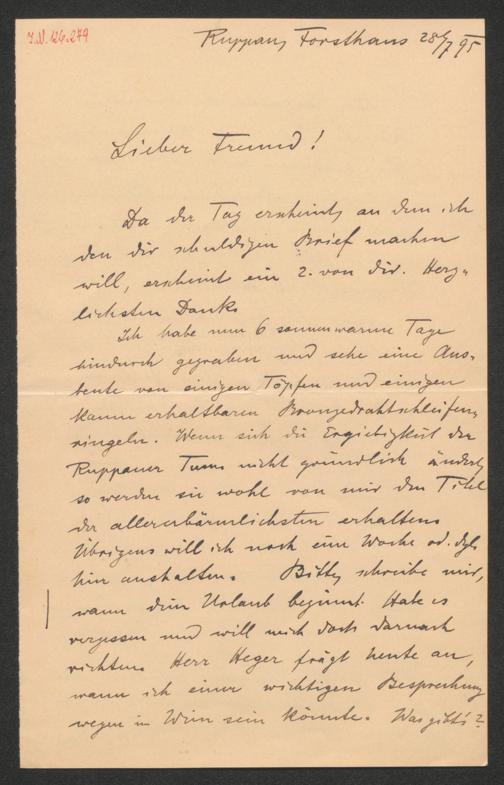 I.N. 126.279
Ruppau, Forsthaus 28/7 95
Lieber Freund!
Da der Tag erscheint, an dem ich
den dir schuldigen Brief machen
will, erscheint ein 2. von dir. Herz-
lichsten Dank.
Ich habe nun 6 sonnenwarme Tage
hindurch gegraben und sehe eine Aus-
beute von einigen Töpfen und einigen
kaum erhaltbaren Bronzedrahtschleifen-
ringeln. Wenn sich die Ergiebigkeit der
Ruppauer Tum. nicht gründlich ändert,
so werden sie wohl von mir den Titel
der allererbärmlichsten erhalten.
Übrigens will ich noch eine Woche od. dgl.
hin aushalten. Bitte, schreibe mir,
wann dein Urlaub beginnt. Habe es
vergessen und will mich doch darnach
richten. Herr Heger frägt heute an,
wann ich einer wichtigen Besprechung
wegen in Wien sein könnte. Was gibt's?